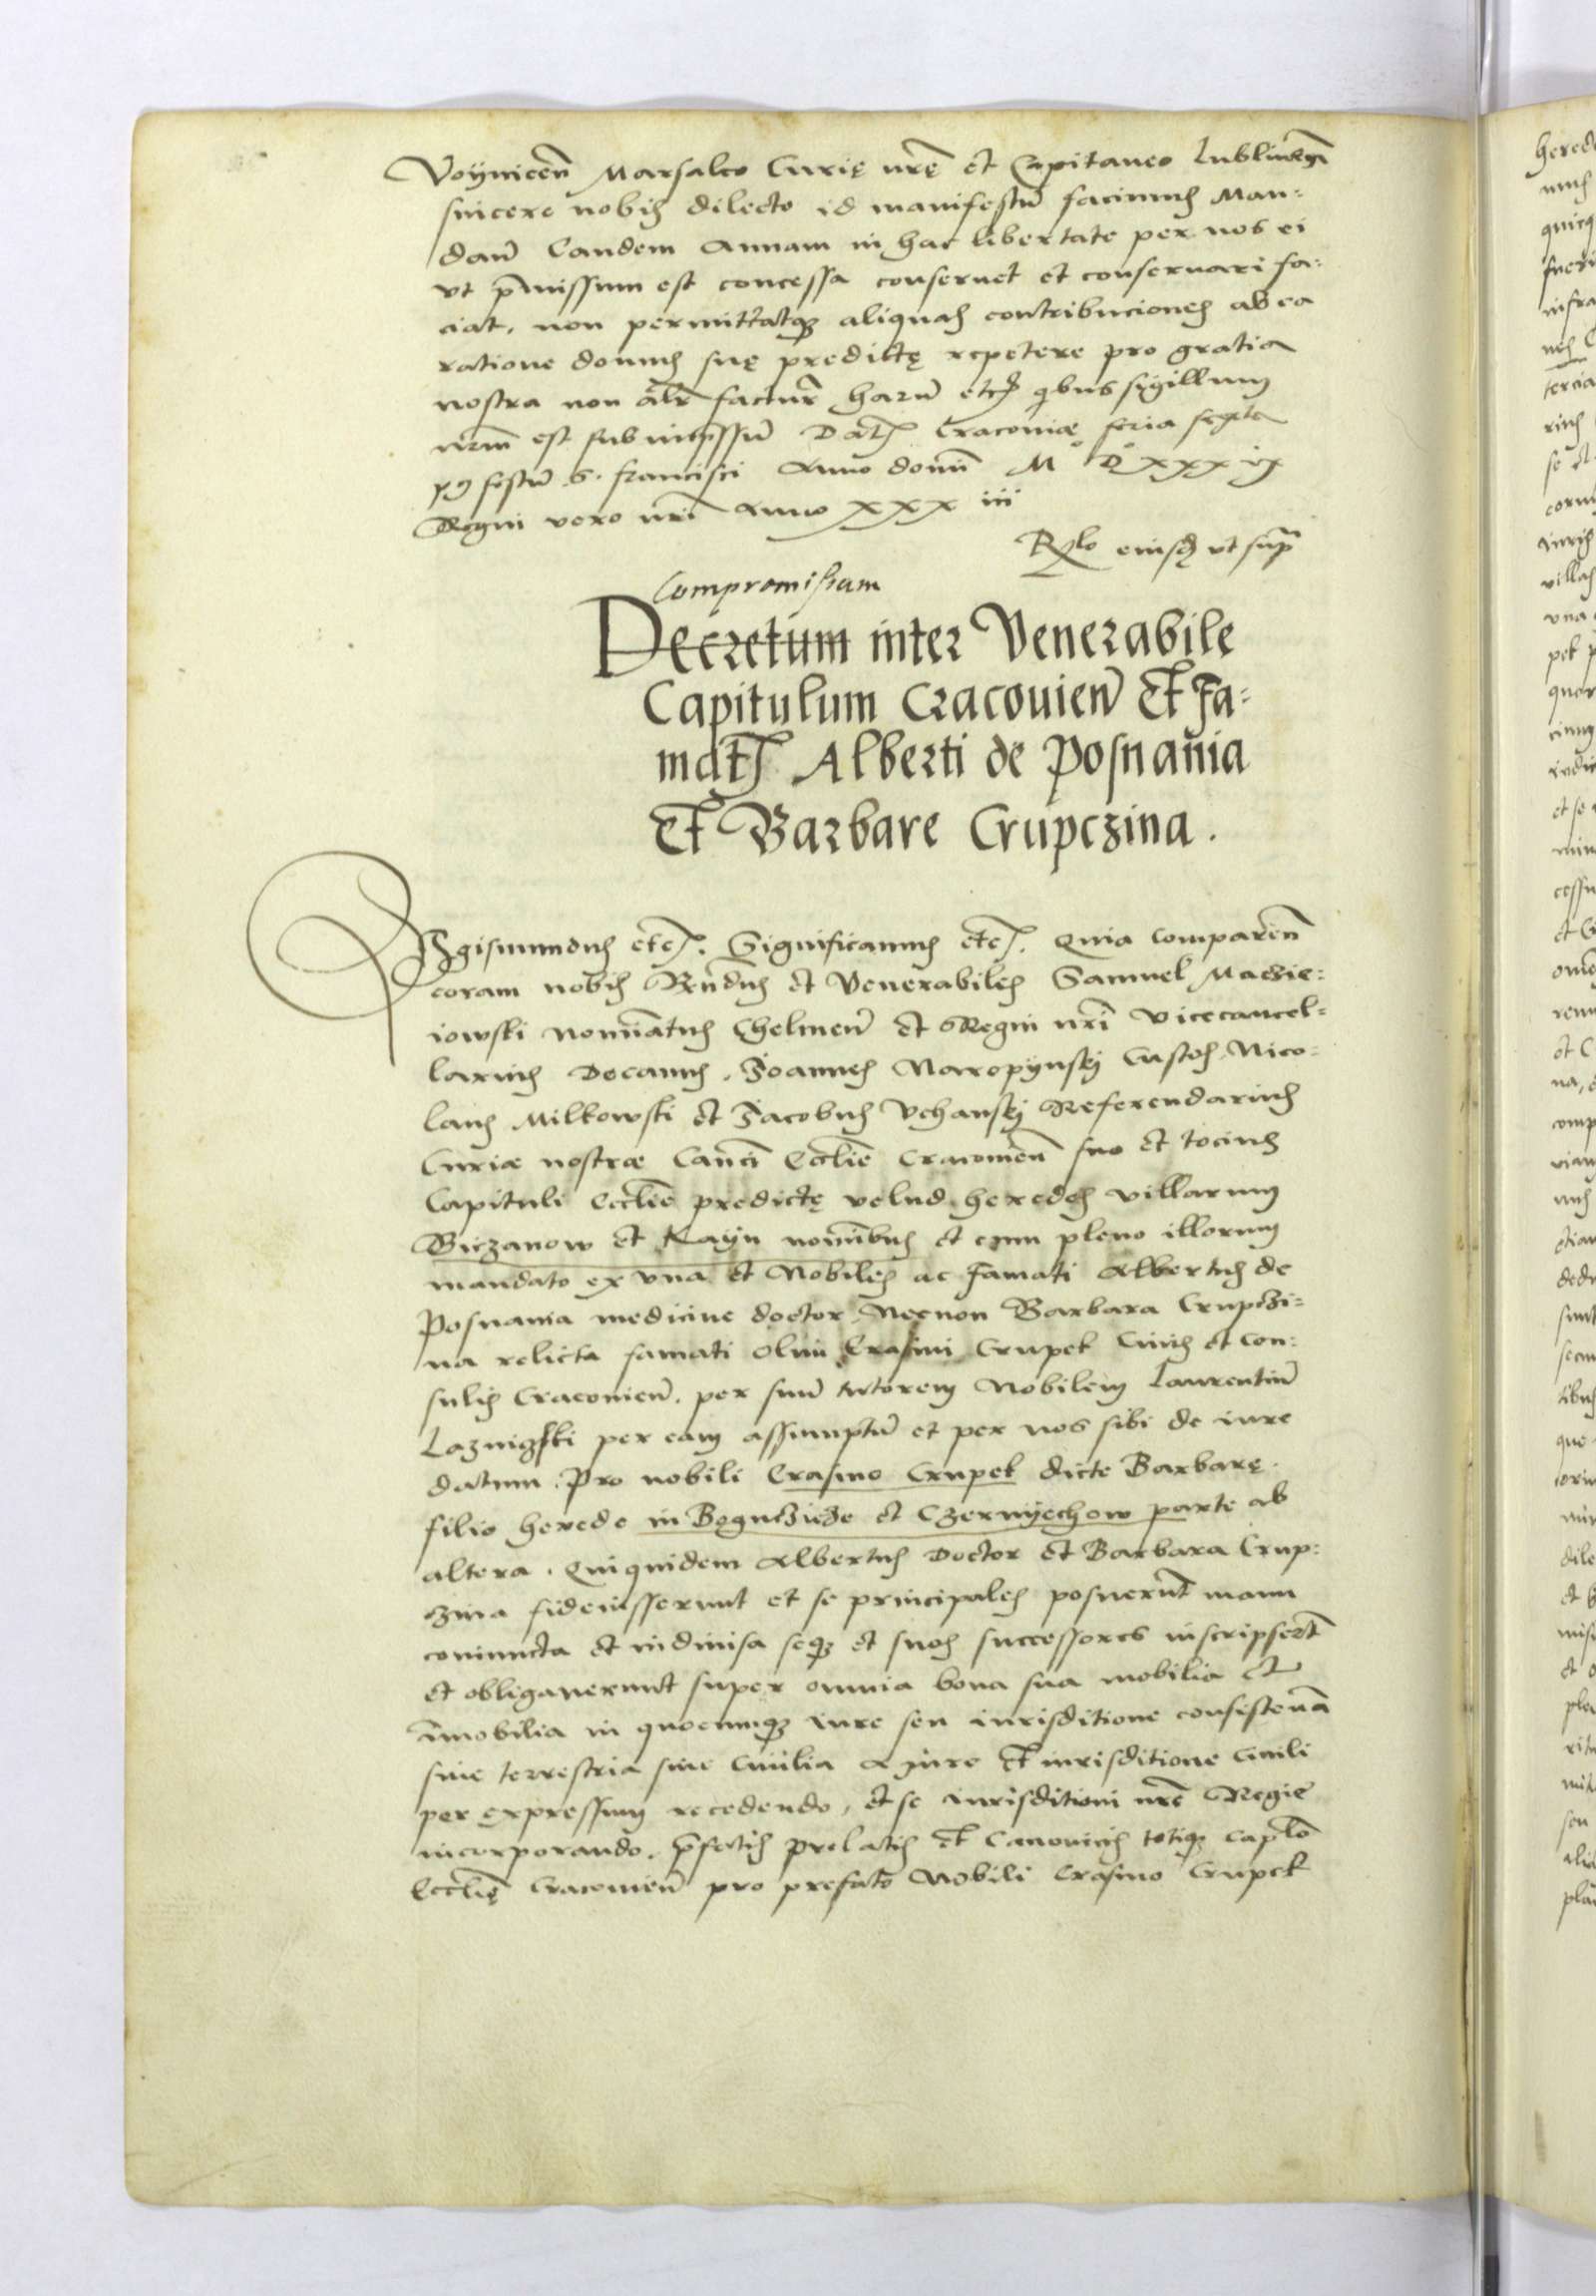 Voynicen̄ Marsalco Curię nr̄ę et Capitaneo Lublinen̄
sincere nobis dilecto id manifestū facimus Man:
dan̄ Eandem Annam in hac libertate per nos ei
vt p̄missum est concessa conseruet et conseruari fa:
ciat, non permittatqȝ aliquas contribuciones ab ea
ratione domus suę predictę repetere pro gratia
nostra non alr̄ factur̄ harū etc̄ qbus sigillum
nrm̄ est subimpssū Dat Cracoviæ feria sexta
festū S. francisci Anno domī M° D° xxx ix
Regni vero nrī Anno xxx iii
Rlo eiusdę vt supr̄a
Compromissum
Decretum inter Venerabile
Capitulum Cracouien̄ Et Fa:
mat Alberti de Posnania
Et Barbare Crupczina.
Sigismundus etc. Significamus etc. Quia comparen̄
coram nobis Rn̄dus et Venerabiles Samuel Maczie:
iowski nominatus Chelmen̄ et Regni nrī Vicecancel:
larius Decanus, Joannes Naropynskj Custos, Nico:
laus Milkowski et Jacobus Vchanskj Referendarius
Curiæ nostræ Canci Eccliē Cracouien̄ suo et tocius
Capituli Eccliē predictę velud heredes villarum
Biczanow et Kayn nominibus et cum pleno illorum
mandato ex vna et Nobiles ac famati Albertus de
Posnania medicine doctor Necnon Barbara Crupczi:
na relicta famati olim Erasmi Crupek Ciuis et con:
sulis Cracouien̄. per suū tutorem Nobilem Laurentiū
per eam assumptū et per nos sibi de iure
datum. Pro nobili Erasmo Crupek dicte Barbarę.
filio herede in Boguczicze et Czernyechow parte ab
altera. Quiquidem Albertus Doctor et Barbara Crup:
czina fideiusserunt et se principales posuerūt manu
coniuncta et indiuisa seqȝ et suos successores inscripsert̄
et obligauerunt super omnia bona sua mobilia Et
īmobilia in quocunqȝ iure seu iurisditione consisten̄a
siue terrestria siue Ciuilia a iure Et iurisditione Ciuili
per expressum recedendo, et se iurisditioni nrē Regiē
incorporando. p̄fatis prelatis Et Canonicis totiqȝ Caplō
Ecclię Cracouien̄ pro prefato Nobili Erasmo Crupek